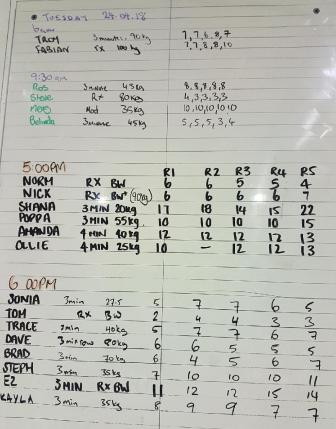 • TUESDAY 24.04.18
6am
TROY 3minute, 90kg 7,7,6,8,7
FABIAN RX 100kg 7,7,8,8,10
9:30am
Ros 3minute 45kg 8,8,8,8,8
Steve Rx 80kg 4,3,3,3,3
Meg Mod 35kg 10,10,10,10,10
Belinda 3minute 45kg 5,5,5,3,4
5:00PM R1 R2 R3 R4 R5
NORM RX BW 6 6 5 5 4
NICK RX BW (90kg) 6 6 6 6 7
SHANA 3 MIN 20kg 17 18 14 15 22
POPPA 3 MIN 55kg 10 10 10 10 15
AMANDA 4 MIN 40kg 12 12 12 12 13
OLLIE 4 MIN 25kg 10 – 12 12 13
6.00PM
SONIA 3min 27.5 5 7 7 6 5
TOM RX BW 2 4 4 3 3
TRACE 3min 40kg 5 7 7 6 7
DAVE 3min row 80kg 6 6 5 5 5
BRAD 3min 70kg 6 4 5 6 7
STEPH 3min 35kg 7 10 10 10 11
EZ 3MIN RX BW 11 12 12 15 14
KAYLA 3min 35kg 8 9 9 7 7